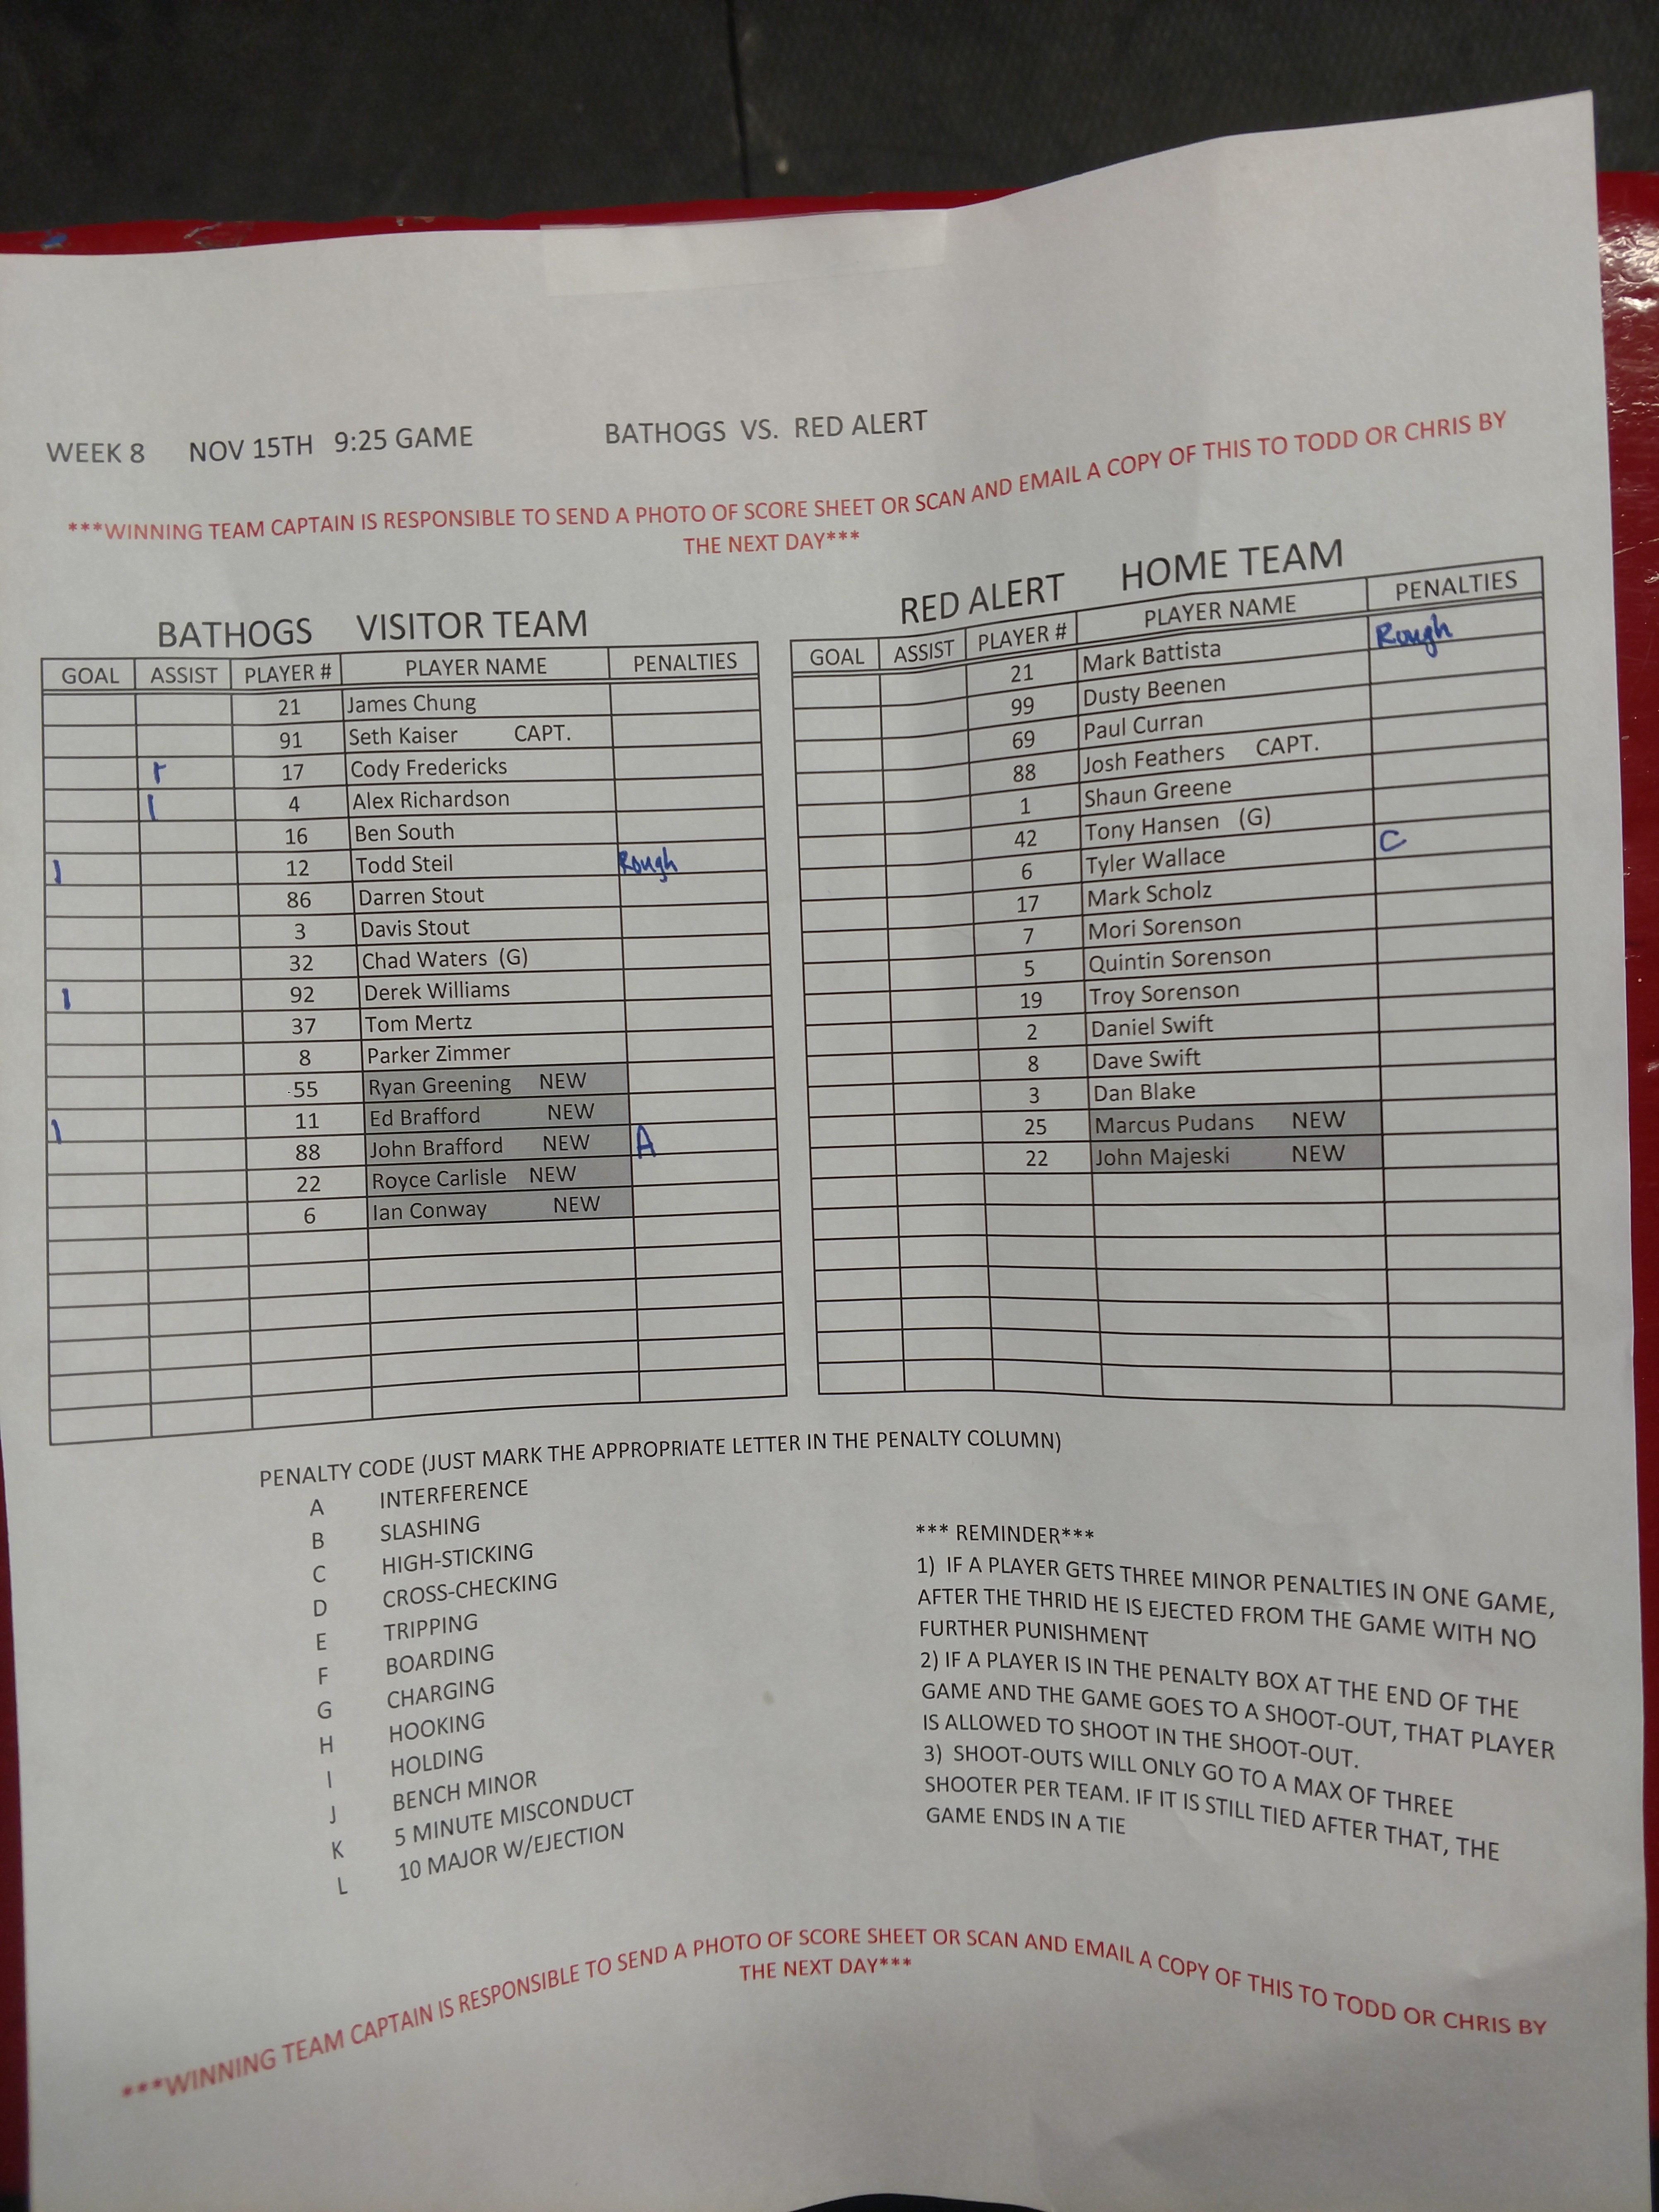 WEEK 8 NOV 15TH 9:25 GAME BATHOGS VS. RED ALERT
***WINNING TEAM CAPTAIN IS RESPONSIBLE TO SEND A PHOTO OF SCORE SHEET OR SCAN AND EMAIL A COPY OF THIS TO TODD OR CHRIS BY
THE NEXT DAY***
BATHOGS VISITOR TEAM
GOAL ASSIST PLAYER # PLAYER NAME PENALTIES
21 James Chung
91 Seth Kaiser CAPT.
17 Cody Fredericks
1 4 Alex Richardson
16 Ben South
1 12 Todd Steil Rough
86 Darren Stout
3 Davis Stout
32 Chad Waters (G)
1 92 Derek Williams
37 Tom Mertz
8 Parker Zimmer
55 Ryan Greening NEW
1 11 Ed Brafford NEW
88 John Brafford NEW A
22 Royce Carlisle NEW
6 Ian Conway NEW
RED ALERT HOME TEAM
GOAL ASSIST PLAYER # PLAYER NAME PENALTIES
21 Mark Battista Rough
99 Dusty Beenen
69 Paul Curran
88 Josh Feathers CAPT.
1 Shaun Greene
42 Tony Hansen (G)
6 Tyler Wallace C
17 Mark Scholz
7 Mori Sorenson
5 Quintin Sorenson
19 Troy Sorenson
2 Daniel Swift
8 Dave Swift
3 Dan Blake
25 Marcus Pudans NEW
22 John Majeski NEW
PENALTY CODE (JUST MARK THE APPROPRIATE LETTER IN THE PENALTY COLUMN)
A INTERFERENCE
B SLASHING
C HIGH-STICKING
D CROSS-CHECKING
E TRIPPING
F BOARDING
G CHARGING
H HOOKING
I HOLDING
J BENCH MINOR
K 5 MINUTE MISCONDUCT
L 10 MAJOR W/EJECTION
*** REMINDER***
1) IF A PLAYER GETS THREE MINOR PENALTIES IN ONE GAME,
AFTER THE THRID HE IS EJECTED FROM THE GAME WITH NO
FURTHER PUNISHMENT
2) IF A PLAYER IS IN THE PENALTY BOX AT THE END OF THE
GAME AND THE GAME GOES TO A SHOOT-OUT, THAT PLAYER
IS ALLOWED TO SHOOT IN THE SHOOT-OUT.
3) SHOOT-OUTS WILL ONLY GO TO A MAX OF THREE
SHOOTER PER TEAM. IF IT IS STILL TIED AFTER THAT, THE
GAME ENDS IN A TIE
***WINNING TEAM CAPTAIN IS RESPONSIBLE TO SEND A PHOTO OF SCORE SHEET OR SCAN AND EMAIL A COPY OF THIS TO TODD OR CHRIS BY
THE NEXT DAY***